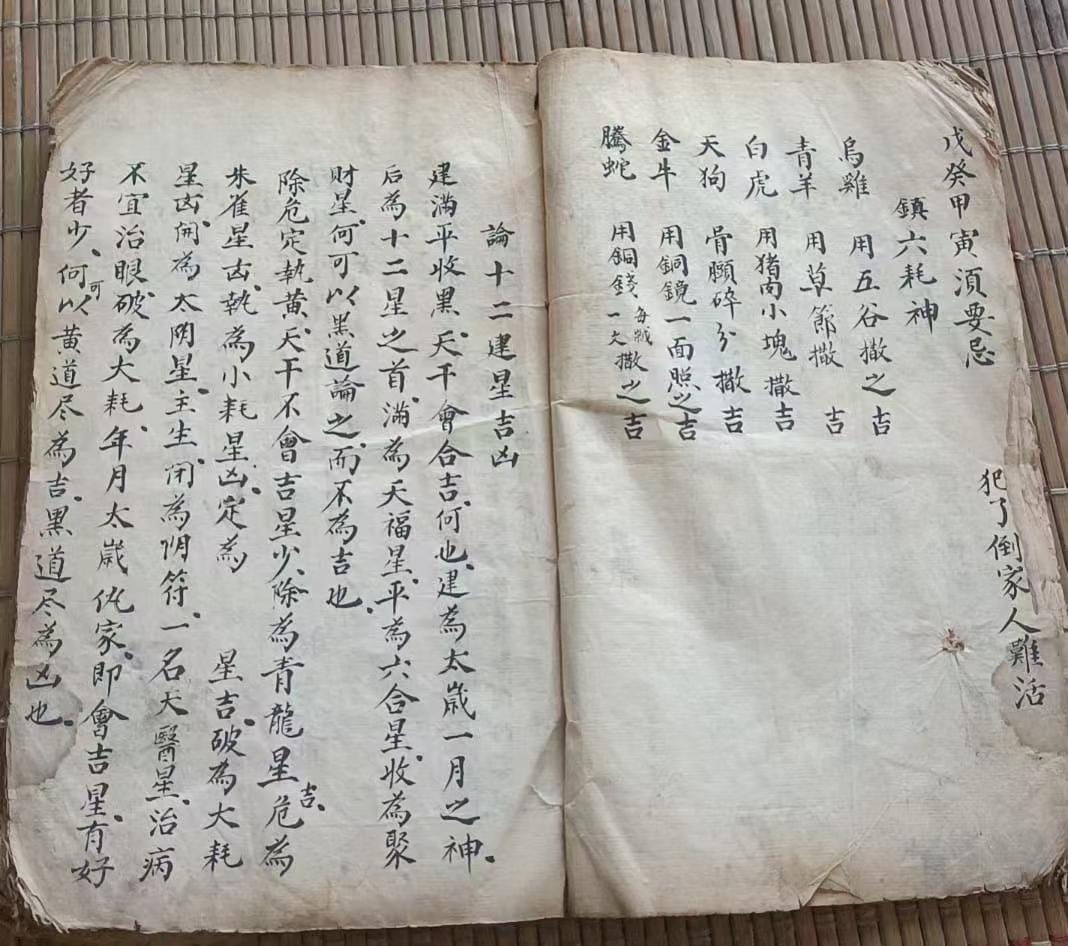 戊癸甲寅須要忌　犯了倒家人難活
鎮六耗神
烏雞　用五谷撒之吉
青羊　用草節撒　吉
白虎　用猪肉小塊撒吉
天狗　骨頭碎分撒吉
金牛　用銅鏡一面照之吉
騰蛇　用銅錢每賊一文撒之吉
論十二建星吉凶
建滿平收黑。天干會合吉。何也。建為太歲一月之神。
后為十二星之首。滿為天福星。平為六合星。收為聚
財星。何可以黑道論之。而不為吉也。
除危定執黃。天干不會吉星少。除為青龍星吉。危為
朱雀星凶。執為小耗星凶。定為　星吉。破為大耗
星凶。開為太阴星。主生。闭為阴符。一名天醫星。治病
不宜治眼。破為大耗。年月太歲仇家。即會吉星。有好
好者少。何可以黃道尽為吉。黑道尽為凶也。